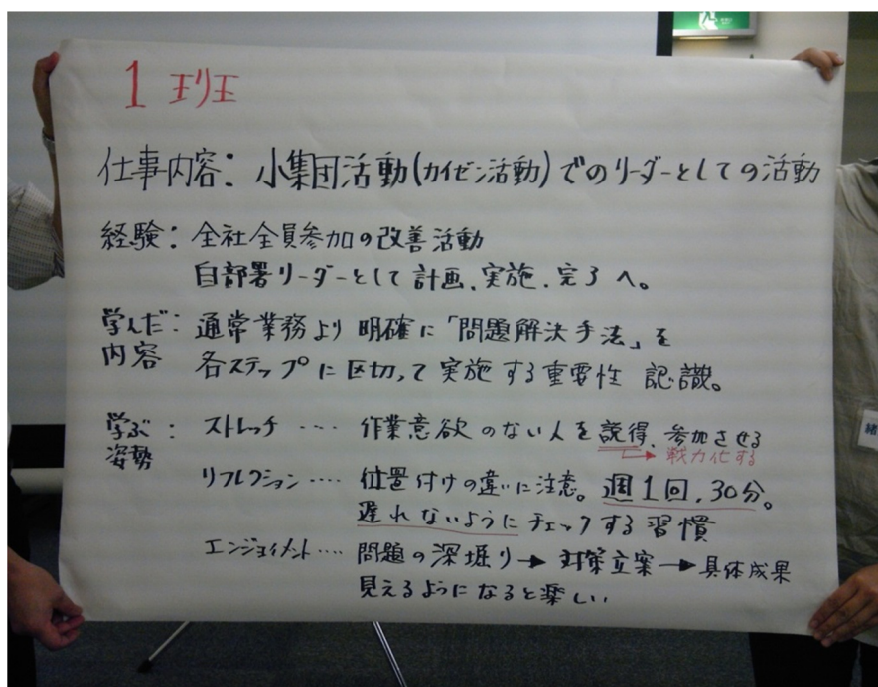 1 班
仕事内容：小集団活動(カイゼン活動)でのリーダーとしての活動
経験：全社全員参加の改善活動
自部署リーダーとして計画、実施、完了へ。
学んだ：通常業務より明確に「問題解決手法」を
内容 各ステップに区切って実施する重要性 認識。
学ぶ：ストレッチ‥‥作業意欲のない人を説得、参加させる
姿勢 →戦力化する
リフレクション‥‥位置付けの違いに注意。週1回、30分。
遅れないようにチェックする習慣
エンジョイメント‥‥問題の深堀り→対策立案→具体成果
見えるようになると楽しい
緒